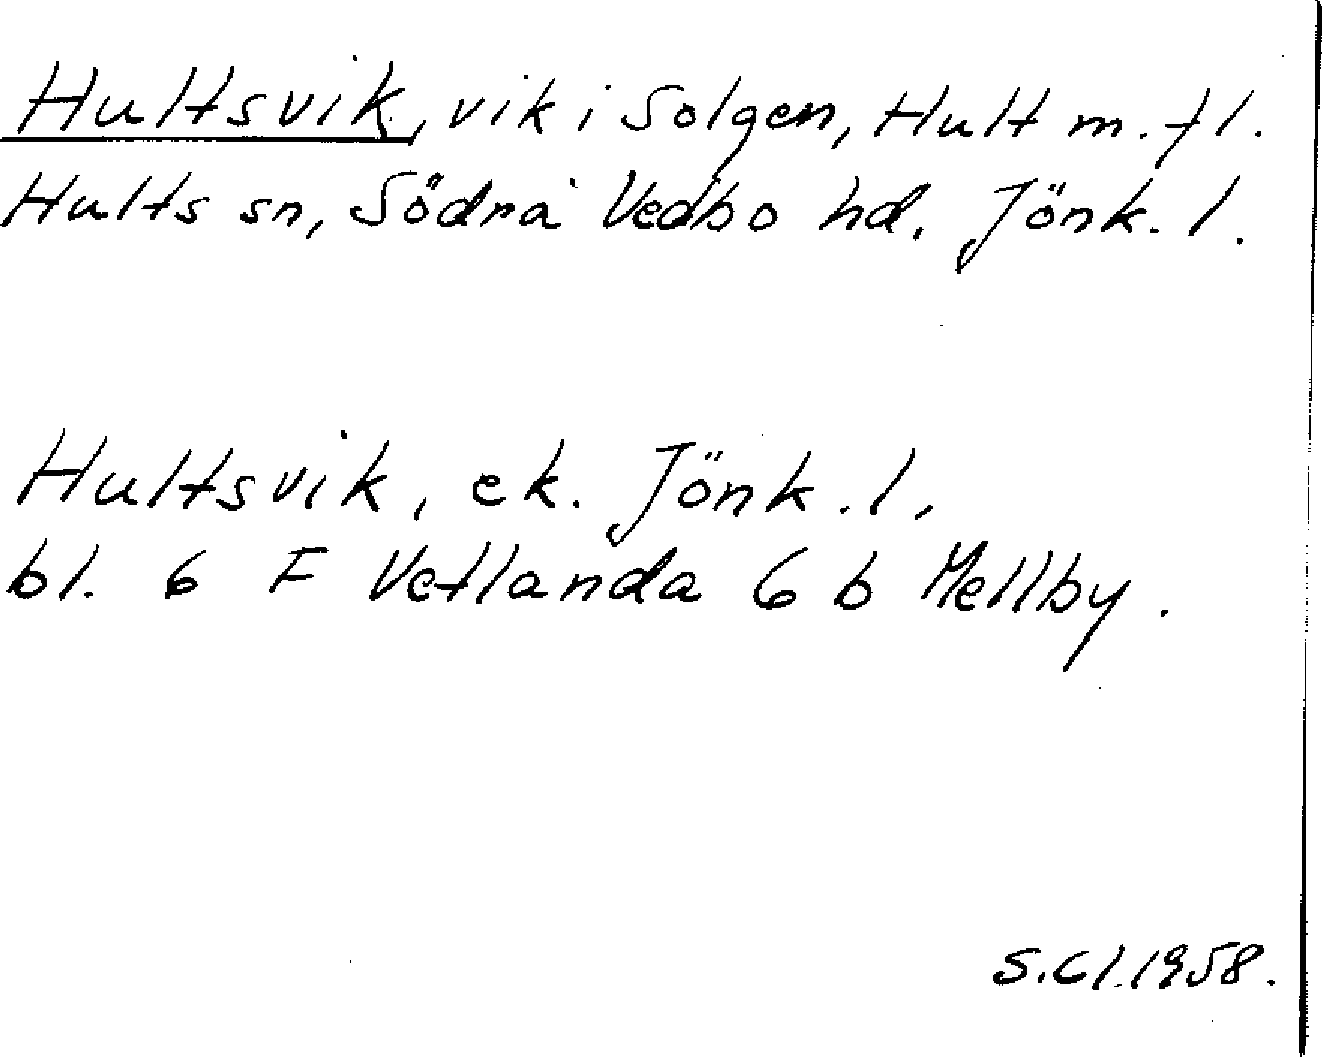 Hultsvik, vik i Solgen, Hult m. fl.
Hults sn, Södra Vedbo hd. Jönk. l.
Hultsvik, ek. Jönk. l,
bl. 6 F Vetlanda 6 b Mellby.
S.Cl.1958.